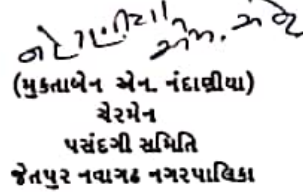 (મુક્તાબેન એન. નંદાણીયા)
ચેરમેન
પસંદગી સમિતિ
જેતપુર નવાગઢ નગરપાલિકા